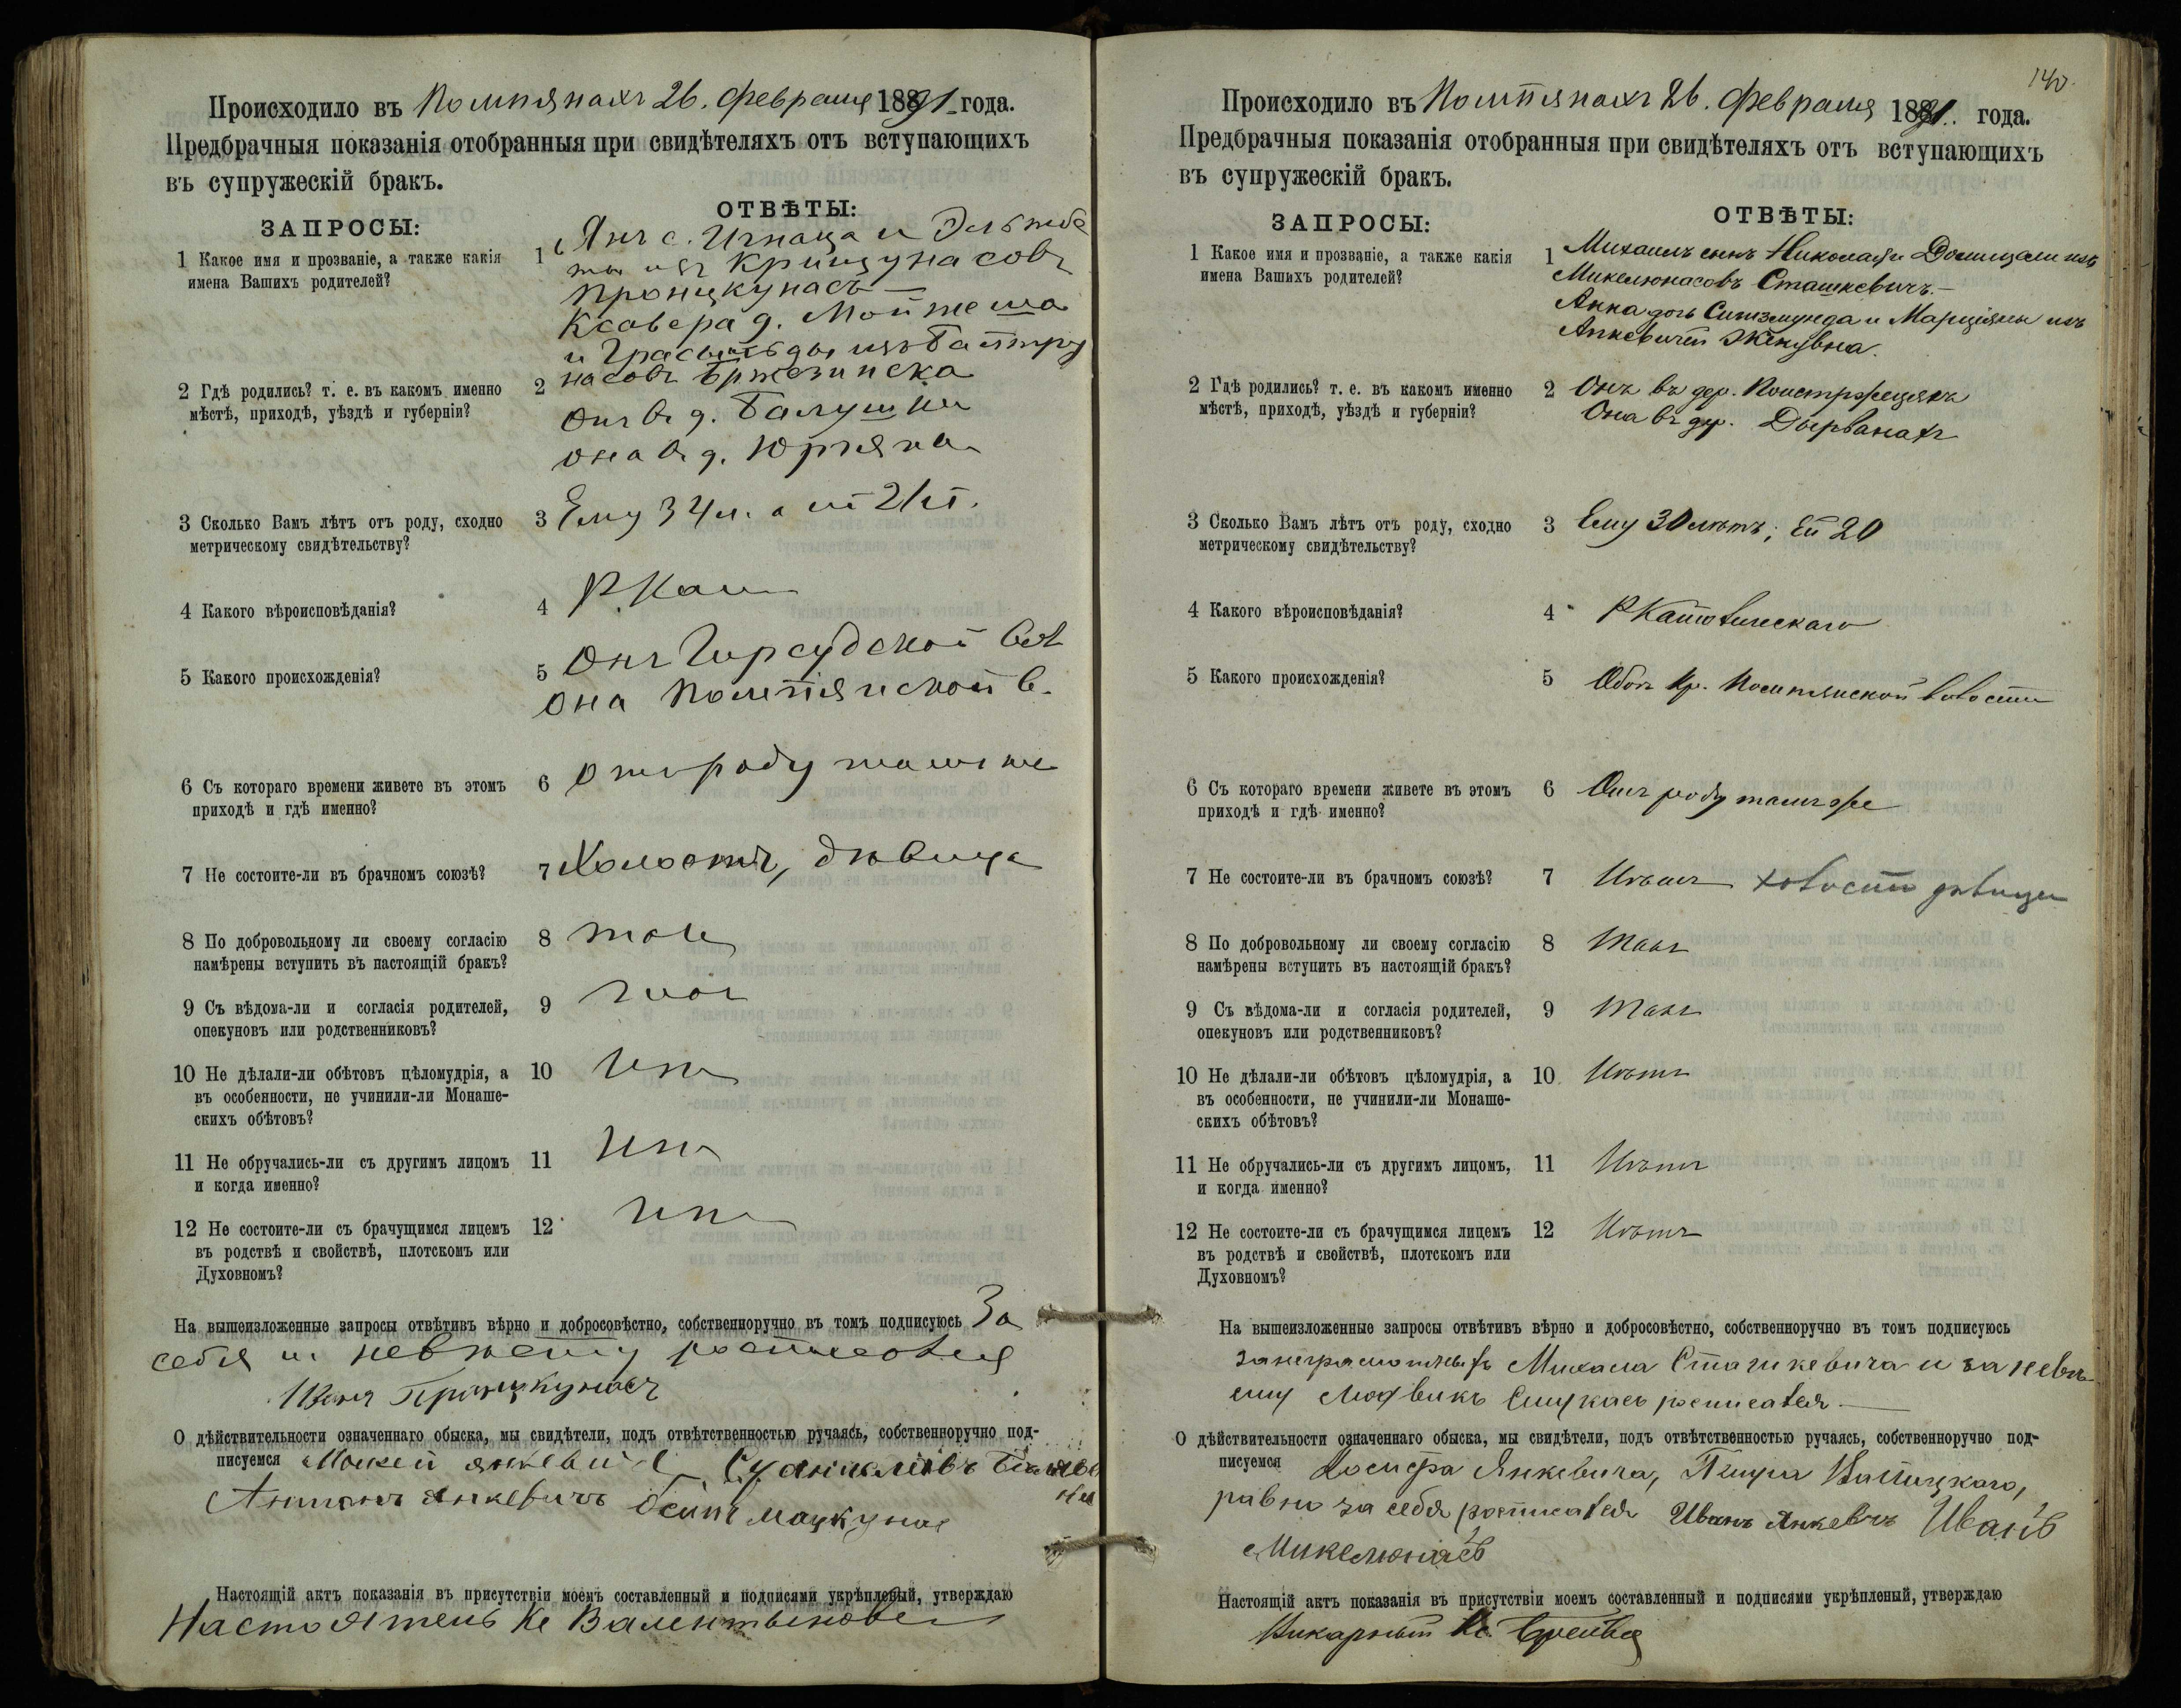 Происходило въ Помпянахъ 26. Февраля 1891 года.
Предбрачныя показанія отобранныя при свидѣтеляхъ отъ вступающихъ
въ супружескій бракъ.
ЗАПРОСЫ:
ОТВѢТЫ:
1 Какое имя и прозваніе, а также какія
имена Вашихъ родителей?
1 Янъ с. Игнаца и Эльжбе
ты изъ
Пронцкунасъ —
Ксавера д.
и изъ
насовъ Бржезинска
2 Гдѣ родились? т. е. въ какомъ именно
мѣстѣ, приходѣ, уѣздѣ и губерніи?
2
Онъ въ д. Балушки
она въ д.
3 Сколько Вамъ лѣтъ отъ роду, сходно
метрическому свидѣтельству?
3 Ему 34 л. а ей 21 л.
4 Какого вѣроисповѣданія?
4 Р. Кат
5 Какого происхожденія?
5 Онъ вол
она Помпянской в.
6 Съ котораго времени живете въ этомъ
приходѣ и гдѣ именно?
6 Отъ роду тамъ же
7 Не состоите-ли въ брачномъ союзѣ?
7 Холостъ, дѣвица
8 По добровольному ли своему согласію
намѣрены вступить въ настоящій бракъ?
8 такъ
9 Съ вѣдома-ли и согласія родителей,
опекуновъ или родственниковъ?
9 такъ
10 Не дѣлали-ли обѣтовъ цѣломудрія, а
въ особенности, не учинили-ли Монаше-
скихъ обѣтовъ?
10 нѣтъ
11 Не обручались-ли съ другимъ лицомъ
и когда именно?
11 нѣтъ
12 Не состоите-ли съ брачущимся лицемъ
въ родствѣ и свойствѣ, плотскомъ или
Духовномъ?
12 нѣтъ
На вышеизложенные запросы отвѣтивъ вѣрно и добросовѣстно, собственноручно въ томъ подписуюсь За
себя и невѣсту
Пронцкунасъ
О дѣйствительности означеннаго обыска, мы свидѣтели, подъ отвѣтственностью ручаясь, собственноручно под-
писуемся Янкевичъ
Антонъ Янкевичъ Осипъ Мацкунас
Настоящій актъ показанія въ присутствіи моемъ составленный и подписями укрѣпленый, утверждаю
Настоятель Кс

140.
Происходило въ Помпянахъ 26. Февраля 1891. года.
Предбрачныя показанія отобранныя при свидѣтеляхъ отъ вступающихъ
въ супружескій бракъ.
ЗАПРОСЫ:
ОТВѢТЫ:
1 Какое имя и прозваніе, а также какія
имена Вашихъ родителей?
1 Михаилъ сынъ Николая и Доминцели изъ
Микелюнасовъ Сташкевичъ. —
Анна дочь Сигизмунда и Марціяны изъ
2 Гдѣ родились? т. е. въ какомъ именно
мѣстѣ, приходѣ, уѣздѣ и губерніи?
2 Онъ въ дер.
Она въ дер. Дырванахъ
3 Сколько Вамъ лѣтъ отъ роду, сходно
метрическому свидѣтельству?
3 Ему 30 лѣтъ; Ей 20
4 Какого вѣроисповѣданія?
4 Р Католическаго
5 Какого происхожденія?
5 Обое кр. Помпянской волости
6 Съ котораго времени живете въ этомъ
приходѣ и гдѣ именно?
6 Отъ роду тамъ же
7 Не состоите-ли въ брачномъ союзѣ?
7 Нѣтъ холостъ дѣвица
8 По добровольному ли своему согласію
намѣрены вступить въ настоящій бракъ?
8 Такъ
9 Съ вѣдома-ли и согласія родителей,
опекуновъ или родственниковъ?
9 Такъ
10 Не дѣлали-ли обѣтовъ цѣломудрія, а
въ особенности, не учинили-ли Монаше-
скихъ обѣтовъ?
10 Нѣтъ
11 Не обручались-ли съ другимъ лицомъ,
и когда именно?
11 Нѣтъ
12 Не состоите-ли съ брачущимся лицемъ
въ родствѣ и свойствѣ, плотскомъ или
Духовномъ?
12 Нѣтъ
На вышеизложенные запросы отвѣтивъ вѣрно и добросовѣстно, собственноручно въ томъ подписуюсь
за неграмотныхъ Михаила Сташкевича и за невѣ-
сту Людвикъ росписался —
О дѣйствительности означеннаго обыска, мы свидѣтели, подъ отвѣтственностью ручаясь, собственноручно под-
писуемся Іосифа Янкевича, Петра
равно за себя росписался Иванъ Янкевичъ Иванъ
Микелюнасъ
Настоящій актъ показанія въ присутствіи моемъ составленный и подписями укрѣпленый, утверждаю
Викарный Кс.